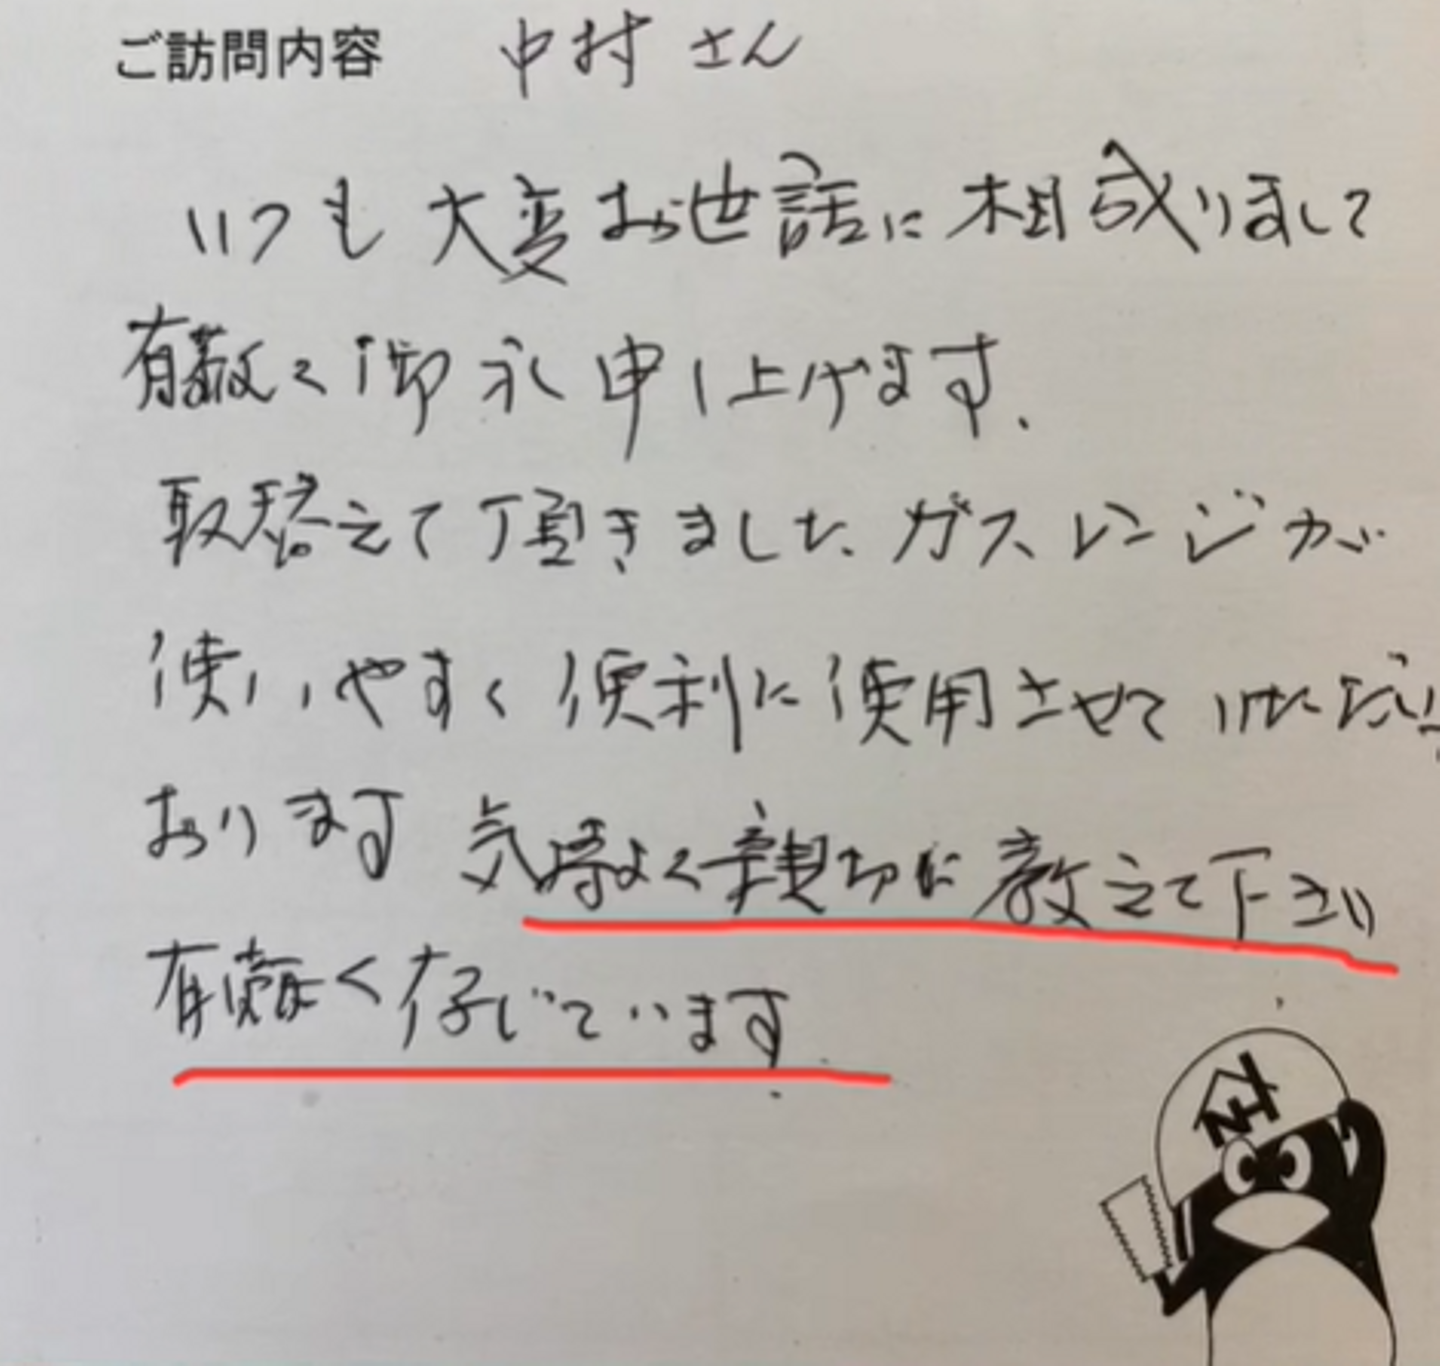 ご訪問内容 中村さん
いつも大変お世話に相成りまして
有難く御礼申し上げます.
取替えて頂きました.ガスレンジが
使いやすく便利に使用させていただいて
おります 気持よく親切に教えて下さい
有難く存じています.